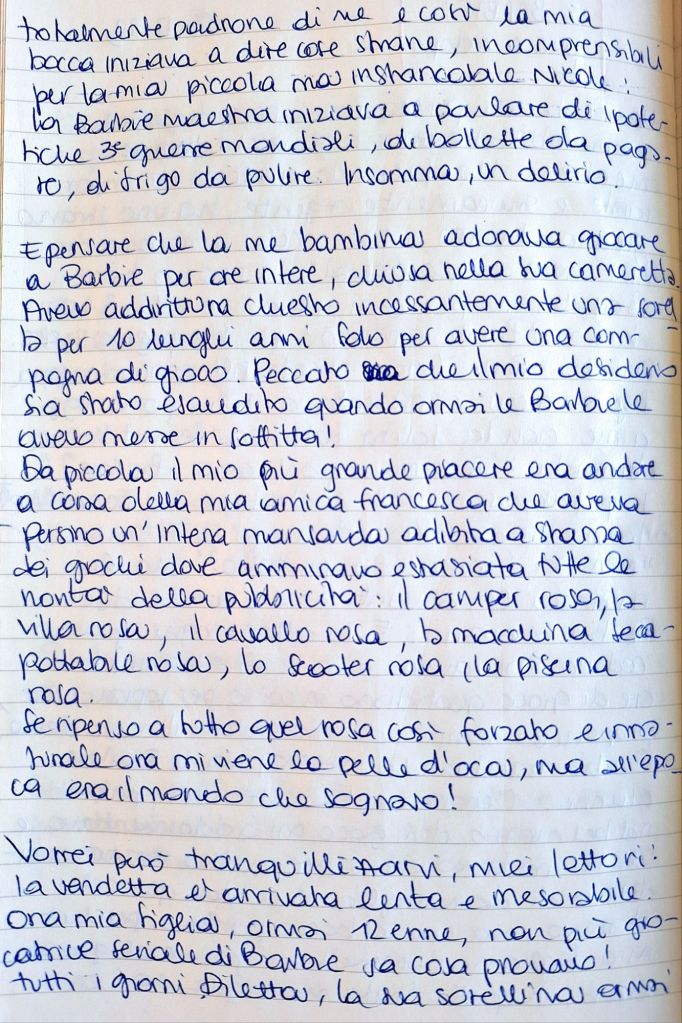 totalmente padrone di me e così la mia
bocca iniziava a dire cose strane, incomprensibili
per la mia piccola ma instancabile Nicole:
la Barbie maestra iniziava a parlare di ipote-
tiche 3e guerre mondiali, di bollette da paga-
re, di frigo da pulire. Insomma, un delirio.
E pensare che la me bambina adorava giocare
a Barbie per ore intere, chiusa nella sua cameretta.
Avevo addirittura chiesto incessantemente una sorel
la per 10 lunghi anni solo per avere una com-
pagna di gioco. Peccato che il mio desiderio
sia stato esaudito quando ormai le Barbie le
avevo messe in soffitta!
Da piccola il mio più grande piacere era andare
a casa della mia amica francesca che aveva
persino un'intera mansarda adibita a stanza
dei giochi dove ammiravo estasiata tutte le
novità della pubblicità: il camper rosa, la
villa rosa, il cavallo rosa, la macchina deca-
pottabile rosa, lo scooter rosa, la piscina
rosa.
Se ripenso a tutto quel rosa così forzato e inna-
turale ora mi viene la pelle d'oca, ma all'epo-
ca era il mondo che sognavo!
Vorrei però tranquillizzarvi, miei lettori:
la vendetta è arrivata lenta e inesorabile.
Ora mia figlia, ormai 12enne, non più gio-
catrice seriale di Barbie sa cosa provavo!
tutti i giorni Diletta, la sua sorellina ormai